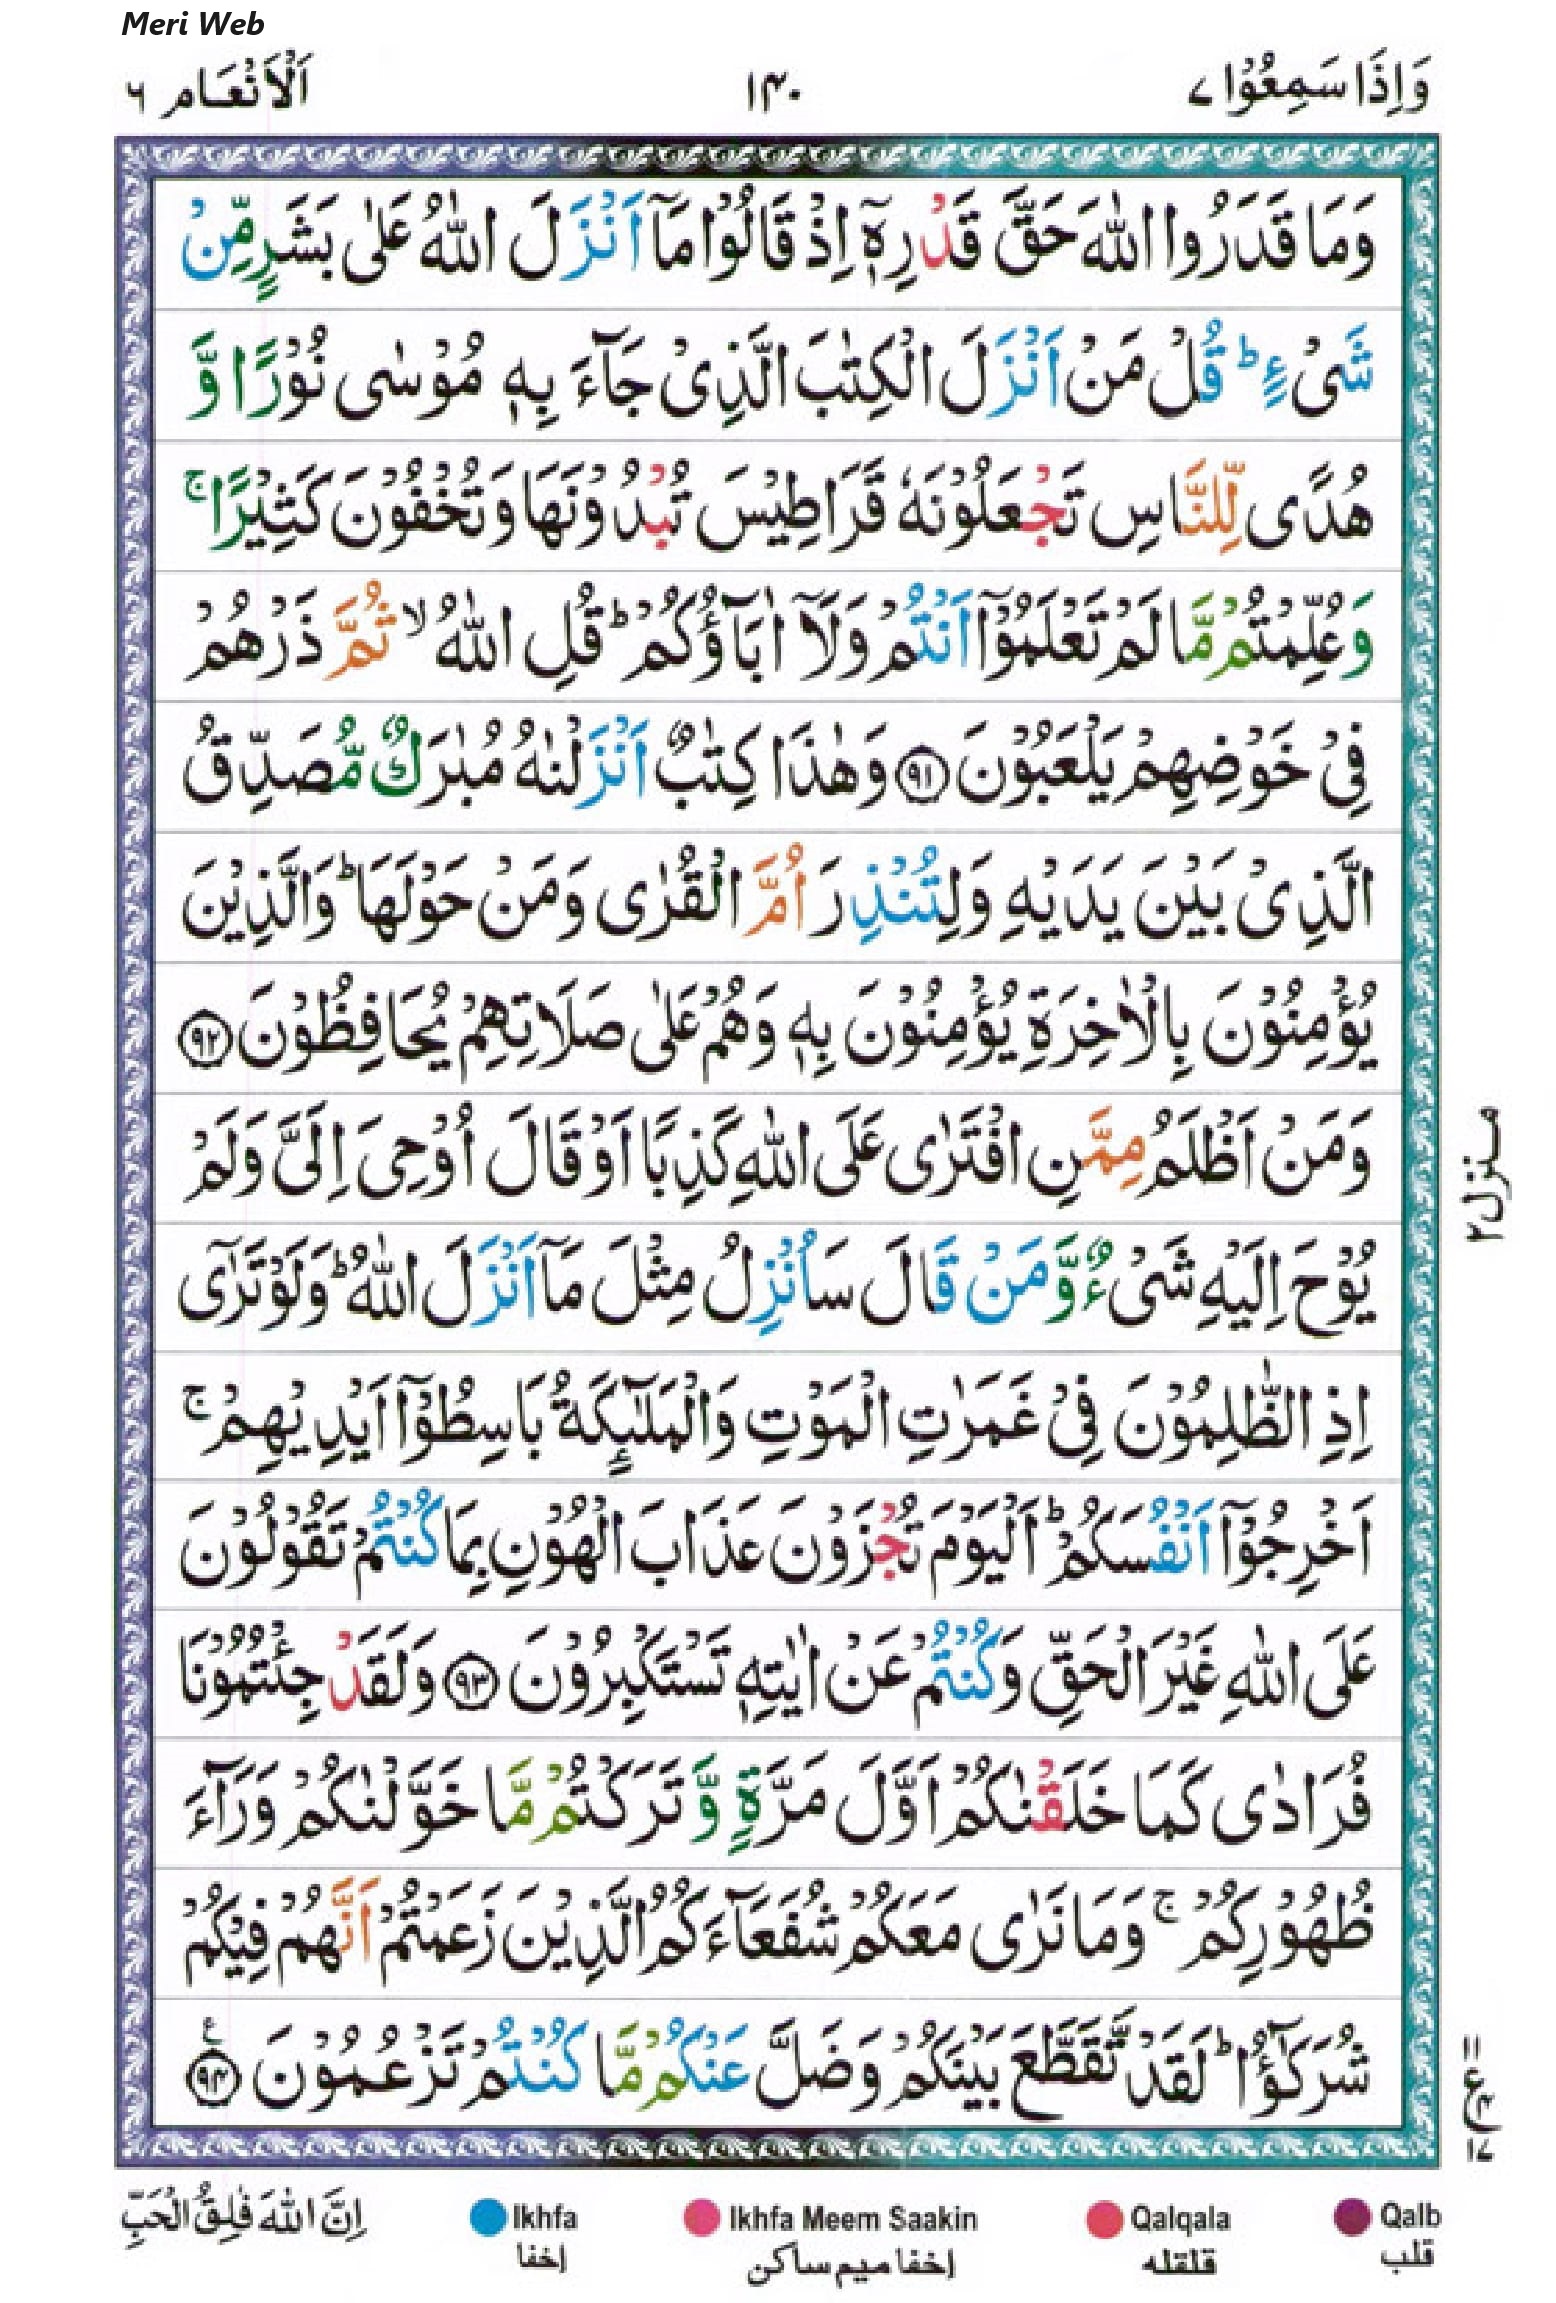 Meri Web
وَاِذَا سَمِعُوْا ٧
١٣٠
اَلْاَنْعَام ٦
وَمَا قَدَرُوا اللّٰهَ حَقَّ قَدْرِهٖٓ اِذْ قَالُوْا مَآ اَنْزَلَ اللّٰهُ عَلٰى بَشَرٍ مِّنْ
شَىْءٍ ؕ قُلْ مَنْ اَنْزَلَ الْكِتٰبَ الَّذِىْ جَآءَ بِهٖ مُوْسٰى نُوْرًا وَّ
هُدًى لِّلنَّاسِ تَجْعَلُوْنَهٗ قَرَاطِيْسَ تُبْدُوْنَهَا وَتُخْفُوْنَ كَثِيْرًا ۚ
وَعُلِّمْتُمْ مَّا لَمْ تَعْلَمُوْٓا اَنْتُمْ وَلَآ اٰبَآؤُكُمْ ؕ قُلِ اللّٰهُ ۙ ثُمَّ ذَرْهُمْ
فِىْ خَوْضِهِمْ يَلْعَبُوْنَ ﴿٩١﴾ وَهٰذَا كِتٰبٌ اَنْزَلْنٰهُ مُبٰرَكٌ مُّصَدِّقُ
الَّذِىْ بَيْنَ يَدَيْهِ وَلِتُنْذِرَ اُمَّ الْقُرٰى وَمَنْ حَوْلَهَا ؕ وَالَّذِيْنَ
يُؤْمِنُوْنَ بِالْاٰخِرَةِ يُؤْمِنُوْنَ بِهٖ وَهُمْ عَلٰى صَلَاتِهِمْ يُحَافِظُوْنَ ﴿٩٢﴾
وَمَنْ اَظْلَمُ مِمَّنِ افْتَرٰى عَلَى اللّٰهِ كَذِبًا اَوْ قَالَ اُوْحِىَ اِلَىَّ وَلَمْ
يُوْحَ اِلَيْهِ شَىْءٌ وَّمَنْ قَالَ سَاُنْزِلُ مِثْلَ مَآ اَنْزَلَ اللّٰهُ ؕ وَلَوْ تَرٰٓى
اِذِ الظّٰلِمُوْنَ فِىْ غَمَرٰتِ الْمَوْتِ وَالْمَلٰٓئِكَةُ بَاسِطُوْٓا اَيْدِيْهِمْ ۚ
اَخْرِجُوْٓا اَنْفُسَكُمْ ؕ اَلْيَوْمَ تُجْزَوْنَ عَذَابَ الْهُوْنِ بِمَا كُنْتُمْ تَقُوْلُوْنَ
عَلَى اللّٰهِ غَيْرَ الْحَقِّ وَكُنْتُمْ عَنْ اٰيٰتِهٖ تَسْتَكْبِرُوْنَ ﴿٩٣﴾ وَلَقَدْ جِئْتُمُوْنَا
فُرَادٰى كَمَا خَلَقْنٰكُمْ اَوَّلَ مَرَّةٍ وَّ تَرَكْتُمْ مَّا خَوَّلْنٰكُمْ وَرَآءَ
ظُهُوْرِكُمْ ۚ وَمَا نَرٰى مَعَكُمْ شُفَعَآءَكُمُ الَّذِيْنَ زَعَمْتُمْ اَنَّهُمْ فِيْكُمْ
شُرَكٰٓؤُا ؕ لَقَدْ تَّقَطَّعَ بَيْنَكُمْ وَضَلَّ عَنْكُمْ مَّا كُنْتُمْ تَزْعُمُوْنَ ﴿٩٤﴾ ع
منزل ٢
١١
ع
١٧
اِنَّ اللّٰهَ فٰلِقُ الْحَبِّ
Ikhfa
اخفا
Ikhfa Meem Saakin
اخفا میم ساکن
Qalqala
قلقله
Qalb
قلب